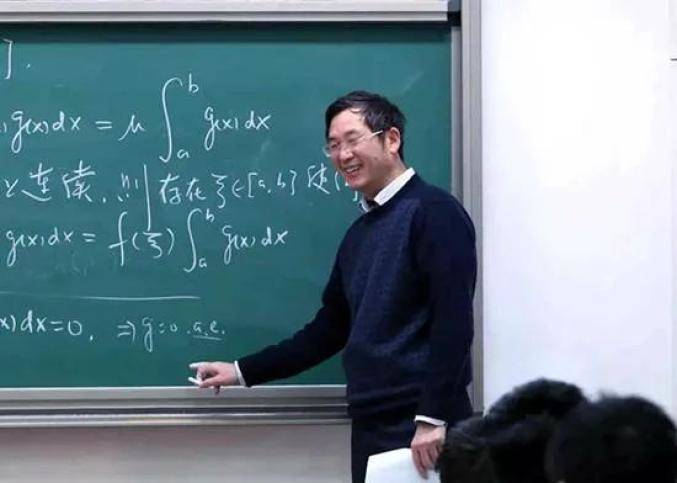 ].
g(x)dx = μ ∫_a^b g(x)dx
连续,则存在ξ∈[a,b]使
g(x)dx = f(ξ)∫_a^b g(x)dx
x)dx=0, ⇒g=0 .a.e.